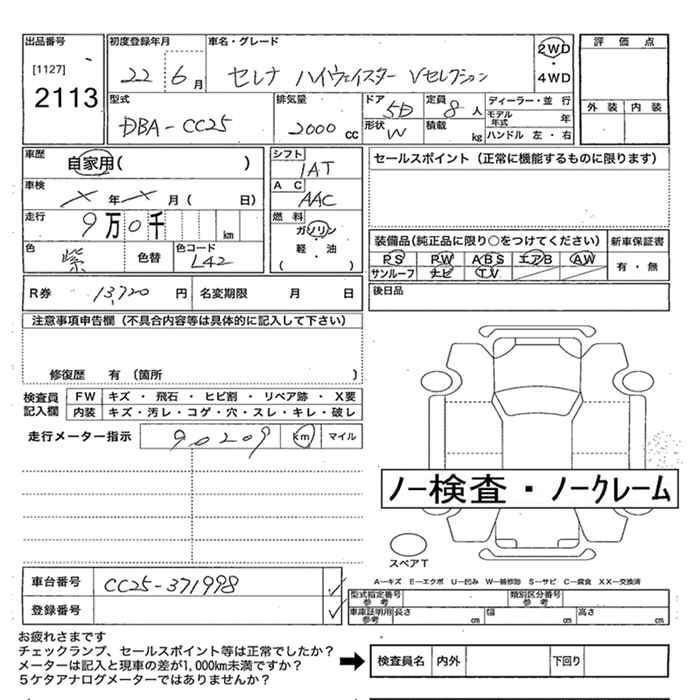 出品番号
[1127]
2113
初度登録年月
22 6月
車名・グレード
セレナ ハイウェイスター Vセレクション
2WD
・
4WD
評価点
外装 内装
型式
DBA-CC25
排気量
2000 cc
ドア
5D
定員
8人
形状
W
積載
kg
ディーラー・並行
モデル年式 年
ハンドル 左・右
車歴
自家用( )
車検
メ 年 メ 月( 日)
走行
9万0千 km
色
紫
色替
色コード
L42
シフト
IAT
AC
AAC
燃料
ガソリン
軽・油
( )
セールスポイント(正常に機能するものに限ります)
装備品(純正品に限り○をつけてください)
PS PW ABS エアB AW
サンルーフ ナビ TV
新車保証書
有・無
後日品
R券 13,720 円
名変期限 月 日
注意事項申告欄(不具合内容等は具体的に記入して下さい)
修復歴 有(箇所
検査員記入欄
FW キズ・飛石・ヒビ割・リペア跡・X要
内装 キズ・汚レ・コゲ・穴・スレ・キレ・破レ
走行メーター指示 90209 km マイル
ノー検査・ノークレーム
スペアT
A−キズ E−エクボ U−凹み W−補修跡 S−サビ C−腐食 XX−交換済
車台番号 CC25-371998
登録番号
型式指定番号 参考
類別区分番号 参考
車庫証明用 参考 長さ cm 幅 cm 高さ cm
お疲れさまです
チェックランプ、セールスポイント等は正常でしたか?
メーターは記入と現車の差が1,000km未満ですか?
5ケタアナログメーターではありませんか?
検査員名 内外 下回り